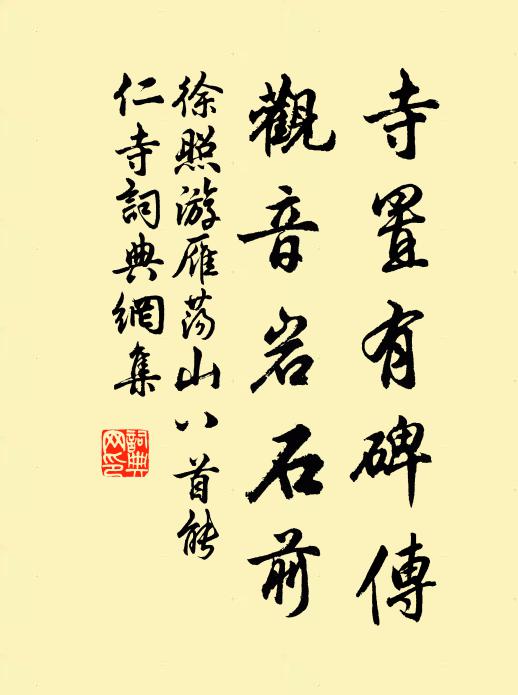 寺置有碑傳
觀音岩石前
徐照游雁蕩山八首能
仁寺詞典網集
詞典網印